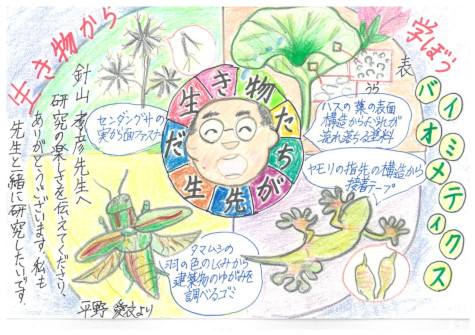 生き物から
学ぼう
バイオミメティクス
生き物たちが先生だ
表
センダングサの
実から面ファスナー
ハスの葉の表面
構造からよごれが
流れ落ちる塗料
ヤモリの指先の構造から
接着テープ
タマムシの
羽の色のしくみから
建築物のゆがみを
調べるゴミ
針山孝彦先生へ
研究の楽しさを伝えてくださり、
ありがとうございます。私も
先生と一緒に研究したいです。
平野 愛衣より